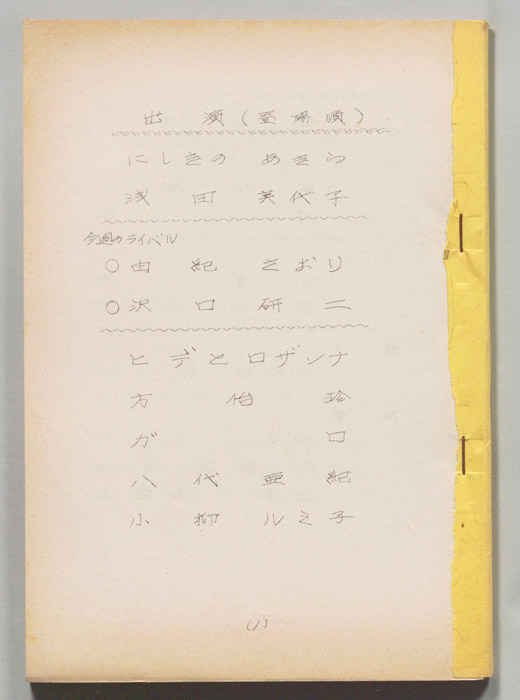 出演(登場順)
にしきのあきら
浅田美代子
今週のライバル
○由紀さおり
○沢口研二
ヒデとロザンナ
方怡珍
ガロ
八代亜紀
小柳ルミ子
(1)